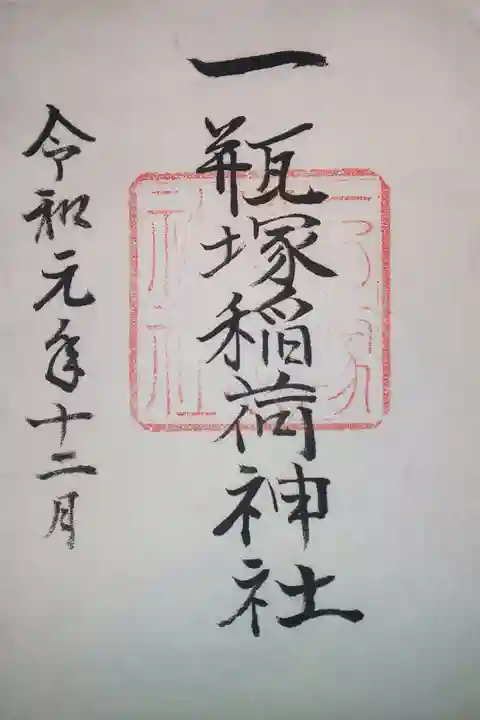 一瓶塚稲荷神社
令和元年十二月